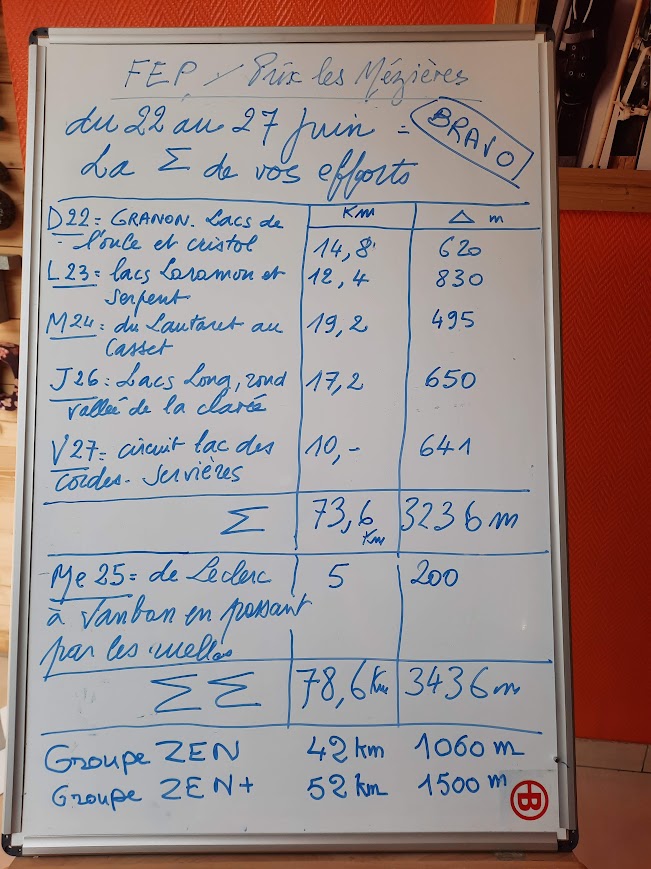 FEP / Prix les Mézières
du 22 au 27 Juin = BRAVO
La Σ de vos efforts
Km Δ m
D22 = GRANON. Lacs de
l'oule et cristol 14,8 620
L23 = lacs Laramon et 12,4 830
Serpent
M24 = du Lautaret au 19,2 495
Casset
J26 : Lacs Long, rond 17,2 650
vallée de la clarée
V27 = circuit lac des 10,- 641
cordes. Servières
Σ 73,6 Km 3236 m
Me 25 = de Leclerc 5 200
à Vauban en passant
par les
ΣΣ 78,6 Km 3436 m
Groupe ZEN 42 km 1060 m
Groupe ZEN+ 52 km 1500 m
B